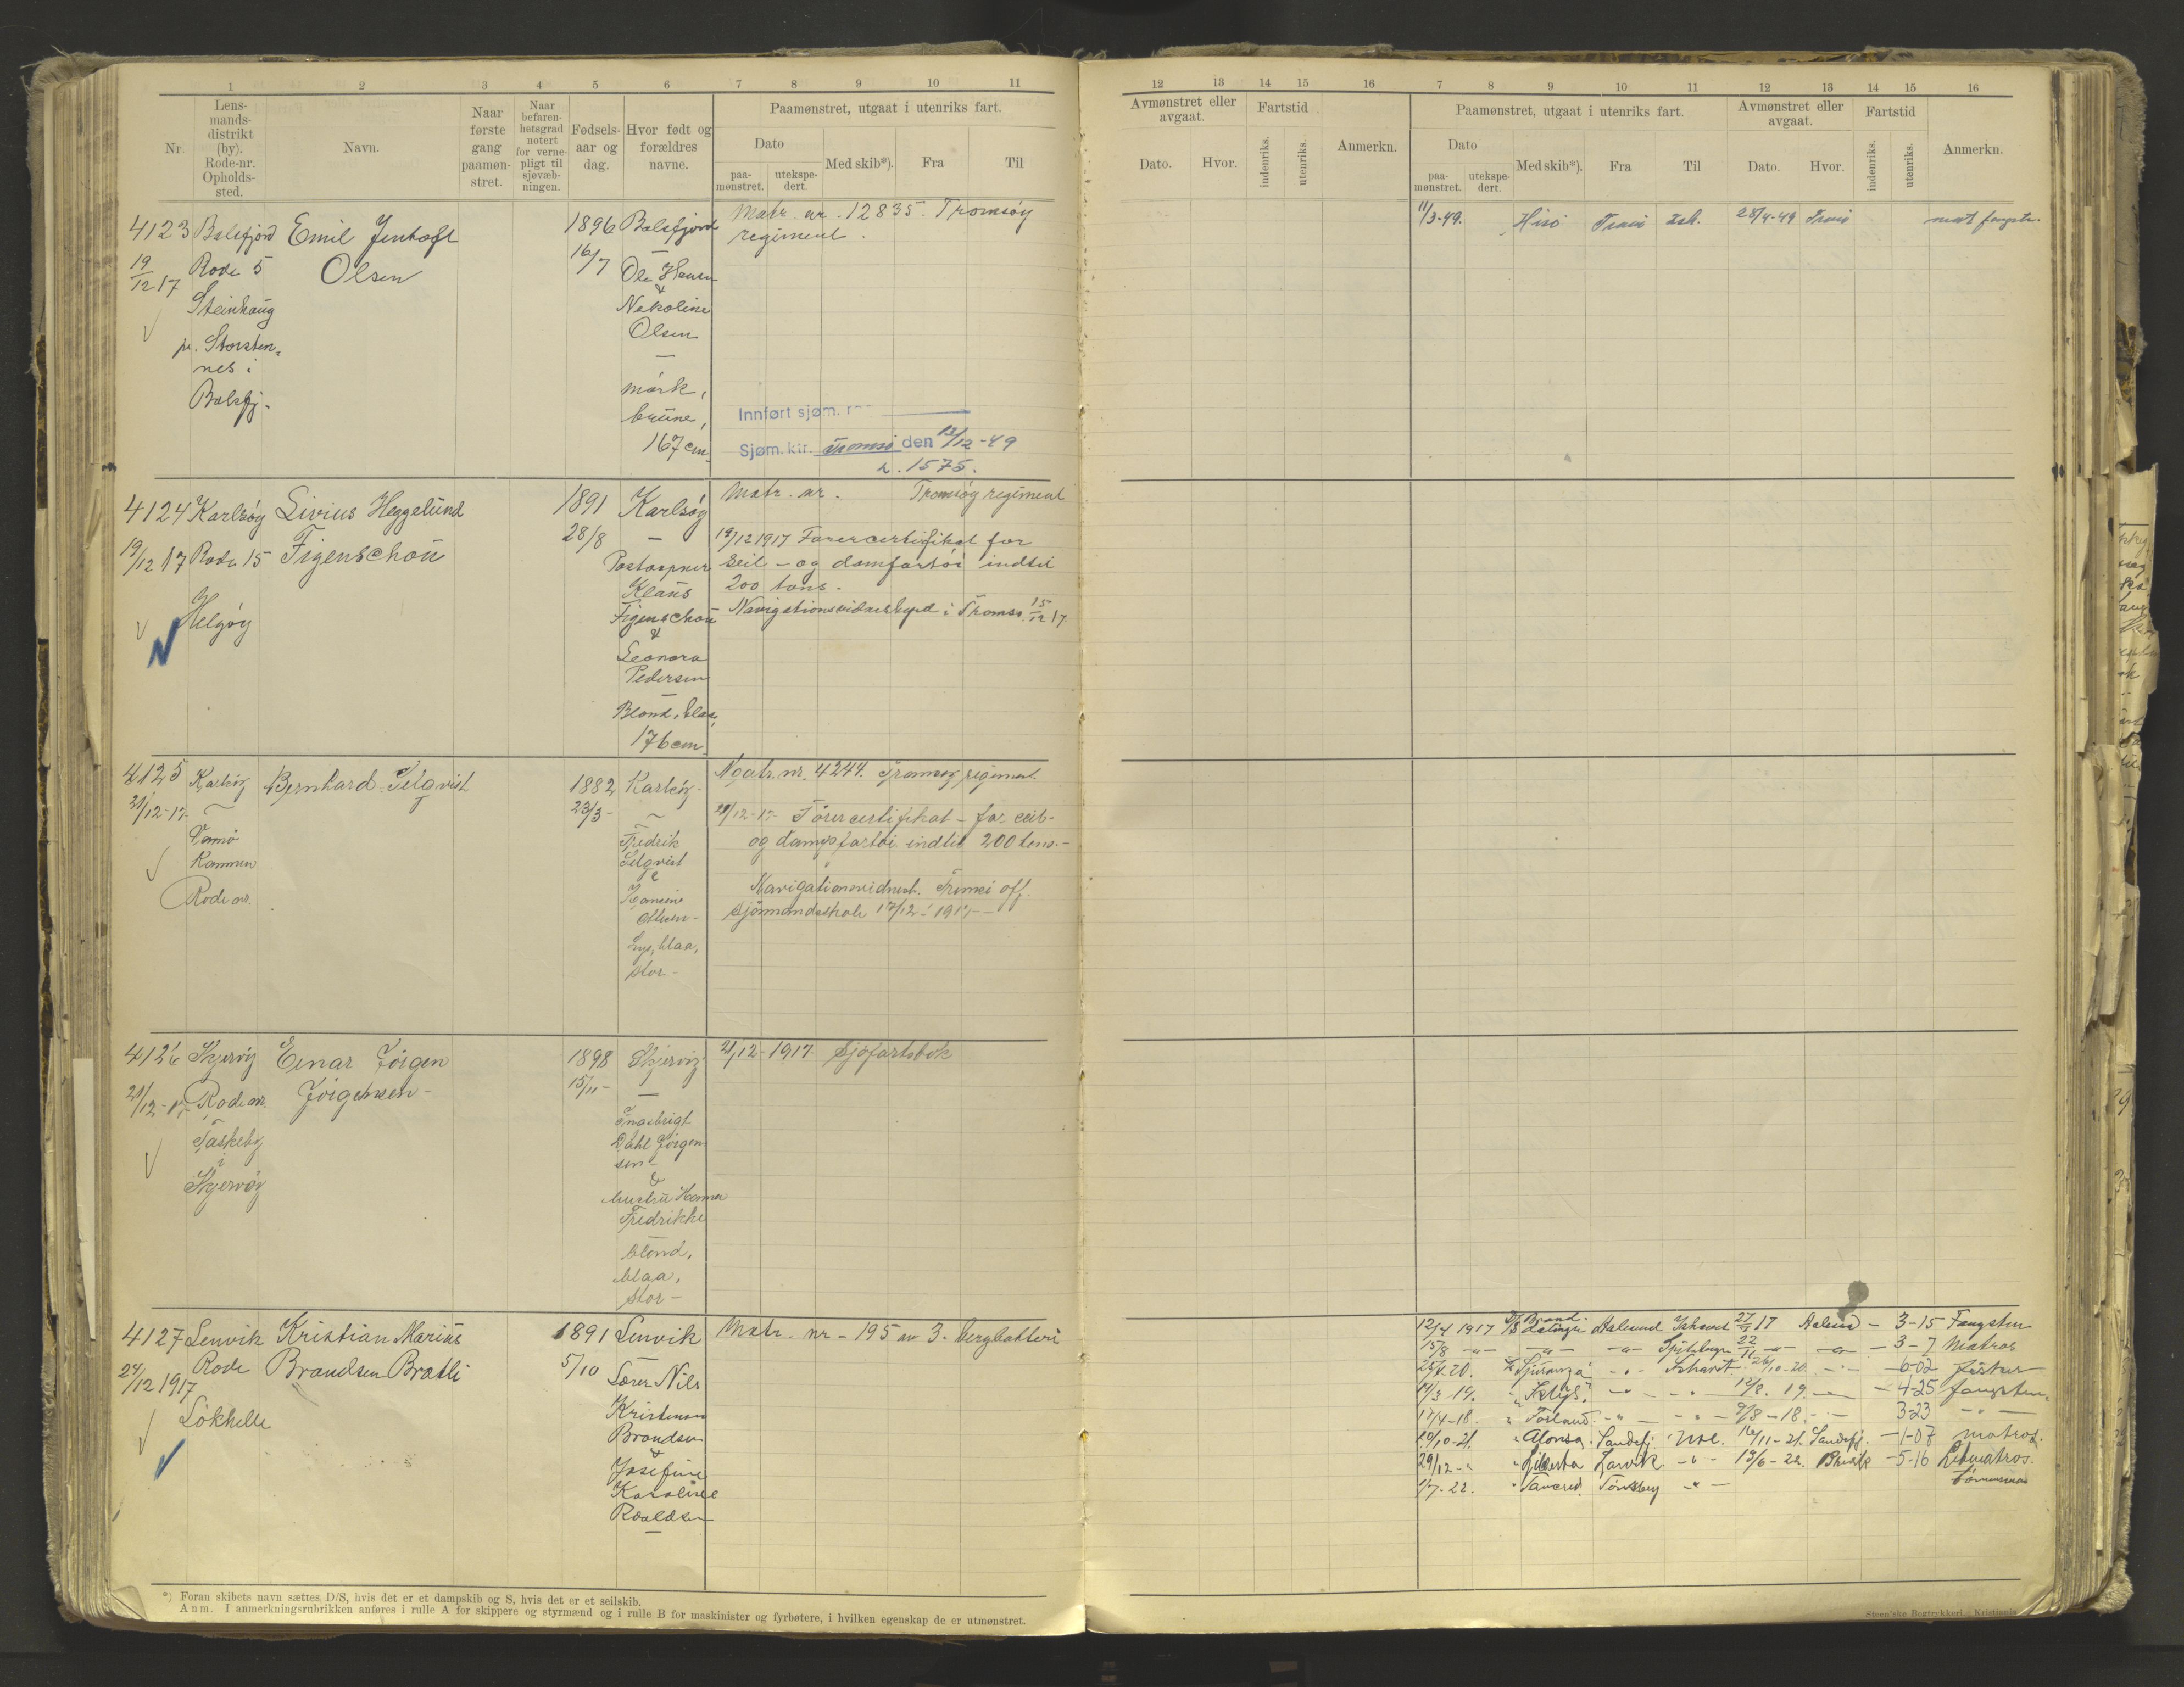 1 2 3 4 5 6 7 8 9 10 11
Nr.
Lens-
mands-
distrikt
(by).
Rode-nr.
Opholds-
sted.
Navn.
Naar
første
gang
paamøn-
stret.
Naar
befaren-
hetsgrad
notert
for verne-
pligt til
sjøvæb-
ningen.
Fødsels-
aar og
dag.
Hvor født og
forældres
navne.
Paamønstret, utgaat i utenriks fart.
Dato
paa-
mønstret.
utekspe-
dert.
Med skib*).
Fra
Til
12 13 14 15 16 7 8 9 10 11 12 13 14 15 16
Avmønstret eller
avgaat.
Dato.
Hvor.
Fartstid
indenriks.
utenriks.
Anmerkn.
Paamønstret, utgaat i utenriks fart.
Dato
paa-
mønstret.
utekspe-
dert.
Med skib*).
Fra
Til
Avmønstret eller
avgaat.
Dato.
Hvor.
Fartstid
indenriks.
utenriks.
Anmerkn.
4123
19/12 17
Balsfjord
Rode 5
Steinhaug
pr. Storsten-
nes i
Balsfj.
Emil Jentoft
Olsen
1896
16/7
Balsfjord
Ole Hansen
&
Nekoline
Olsen
mørk,
brune,
167 cm.
Matr. nr. 12835. Tromsøy
regiment.
Innført sjøm.
Sjøm.ktr. Tromsø den 13/12-49
L. 1575.
11/3-49. Hisö Tromsö Ish. 28/4-49 Tromsö mat fangstm.
4124
19/12 17
Karlsøy
Rode 15
Helgøy
Livius Heggelund
Figenschou
1891
28/8
Karlsøy
Postaapner
Klaus
Figenschou
&
Leonora
Pedersen
Blond, blaa,
176 cm.
Matr. nr. Tromsøy regiment
19/12 1917 Førercertifikat for
seil- og damfartøi indtil
200 tons.
Navigationsvidnesbyrd i Tromsø 15/12 17.
4125
21/12-17.
Karlsöy
Rode nr.
Bernhard Selqvist
1882
23/3-
Karlsöy.
Fredrik
Selqvist
Hansine
Olsen-
Lys, blaa,
stor-
Matr. nr. 4244. Tromsøy regiment
21/12-17- Förercertifikat - for seil-
og dampfartöi indtil 200 tons.-
Navigationsvidnesb. Tromsö off.
Sjömandsskole 17/12-1917-
4126
21/12-17-
Skjervöy
Rode nr.
Taskeby
i
Skjervöy
Einar Jörgen
Jörgensen-
1898
15/11-
Skjervöy
Ingebrigt
Dahl Jörgen-
sen-
&
Hustru Hanna
Fredrikke
Blond,
blaa,
stor-
21/12-1917. Sjöfartsbok
4127
24/12 1917
Lenvik
Rode
Løkhelle
Kristian Marius
Brandsen Bratli
1891
5/10
Lenvik
Lærer Nils
Kristensen
Brandsen
&
Josefine
Karoline
Roaldsen
Matr. nr - 195 av 3. bergbatteri
12/4 1917 Aalesund Ishavet 27/7 17 Aalesund - 3-15 Fangstm
15/8 -"- -"- -"- Spitsbergen 22/11 -"- -"- - 3-7 Matros
-20. -"- Ishavet 26/10-20. -"- - 6-02 fisker
14/3 19. -"- -"- 12/8. 19. -"- - 4-25 fangstm.
17/4-18. -"- -"- 9/8-18. -"- 3-23 -"-
20/10-21. " Alonso. Sandefj. 16/11-21. Sandefj. -1-07 matros.
29/12-" Larvik -"- 13/6-22. -5-16 Letmatros.
1/7-22. " Tancred Tönsberg -"- Tömmerman
*) Foran skibets navn sættes D/S, hvis det er et dampskib og S, hvis det er et seilskib.
Anm. I anmerkningsrubrikken anføres i rulle A for skippere og styrmænd og i rulle B for maskinister og fyrbøtere, i hvilken egenskap de er utmønstret.
Steen'ske Bogtrykkeri. Kristiania